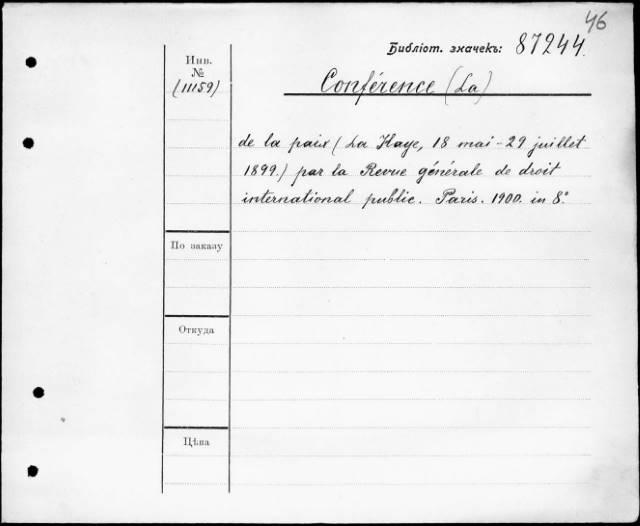 46
Библіот. значекъ: 87244.
Инв.
№
(11159)
Conférence (La)
de la paix (La Haye, 18 mai - 29 juillet
1899.) par la Revue générale de droit
international public. Paris. 1900. in 8°
По заказу
Откуда
Цѣна